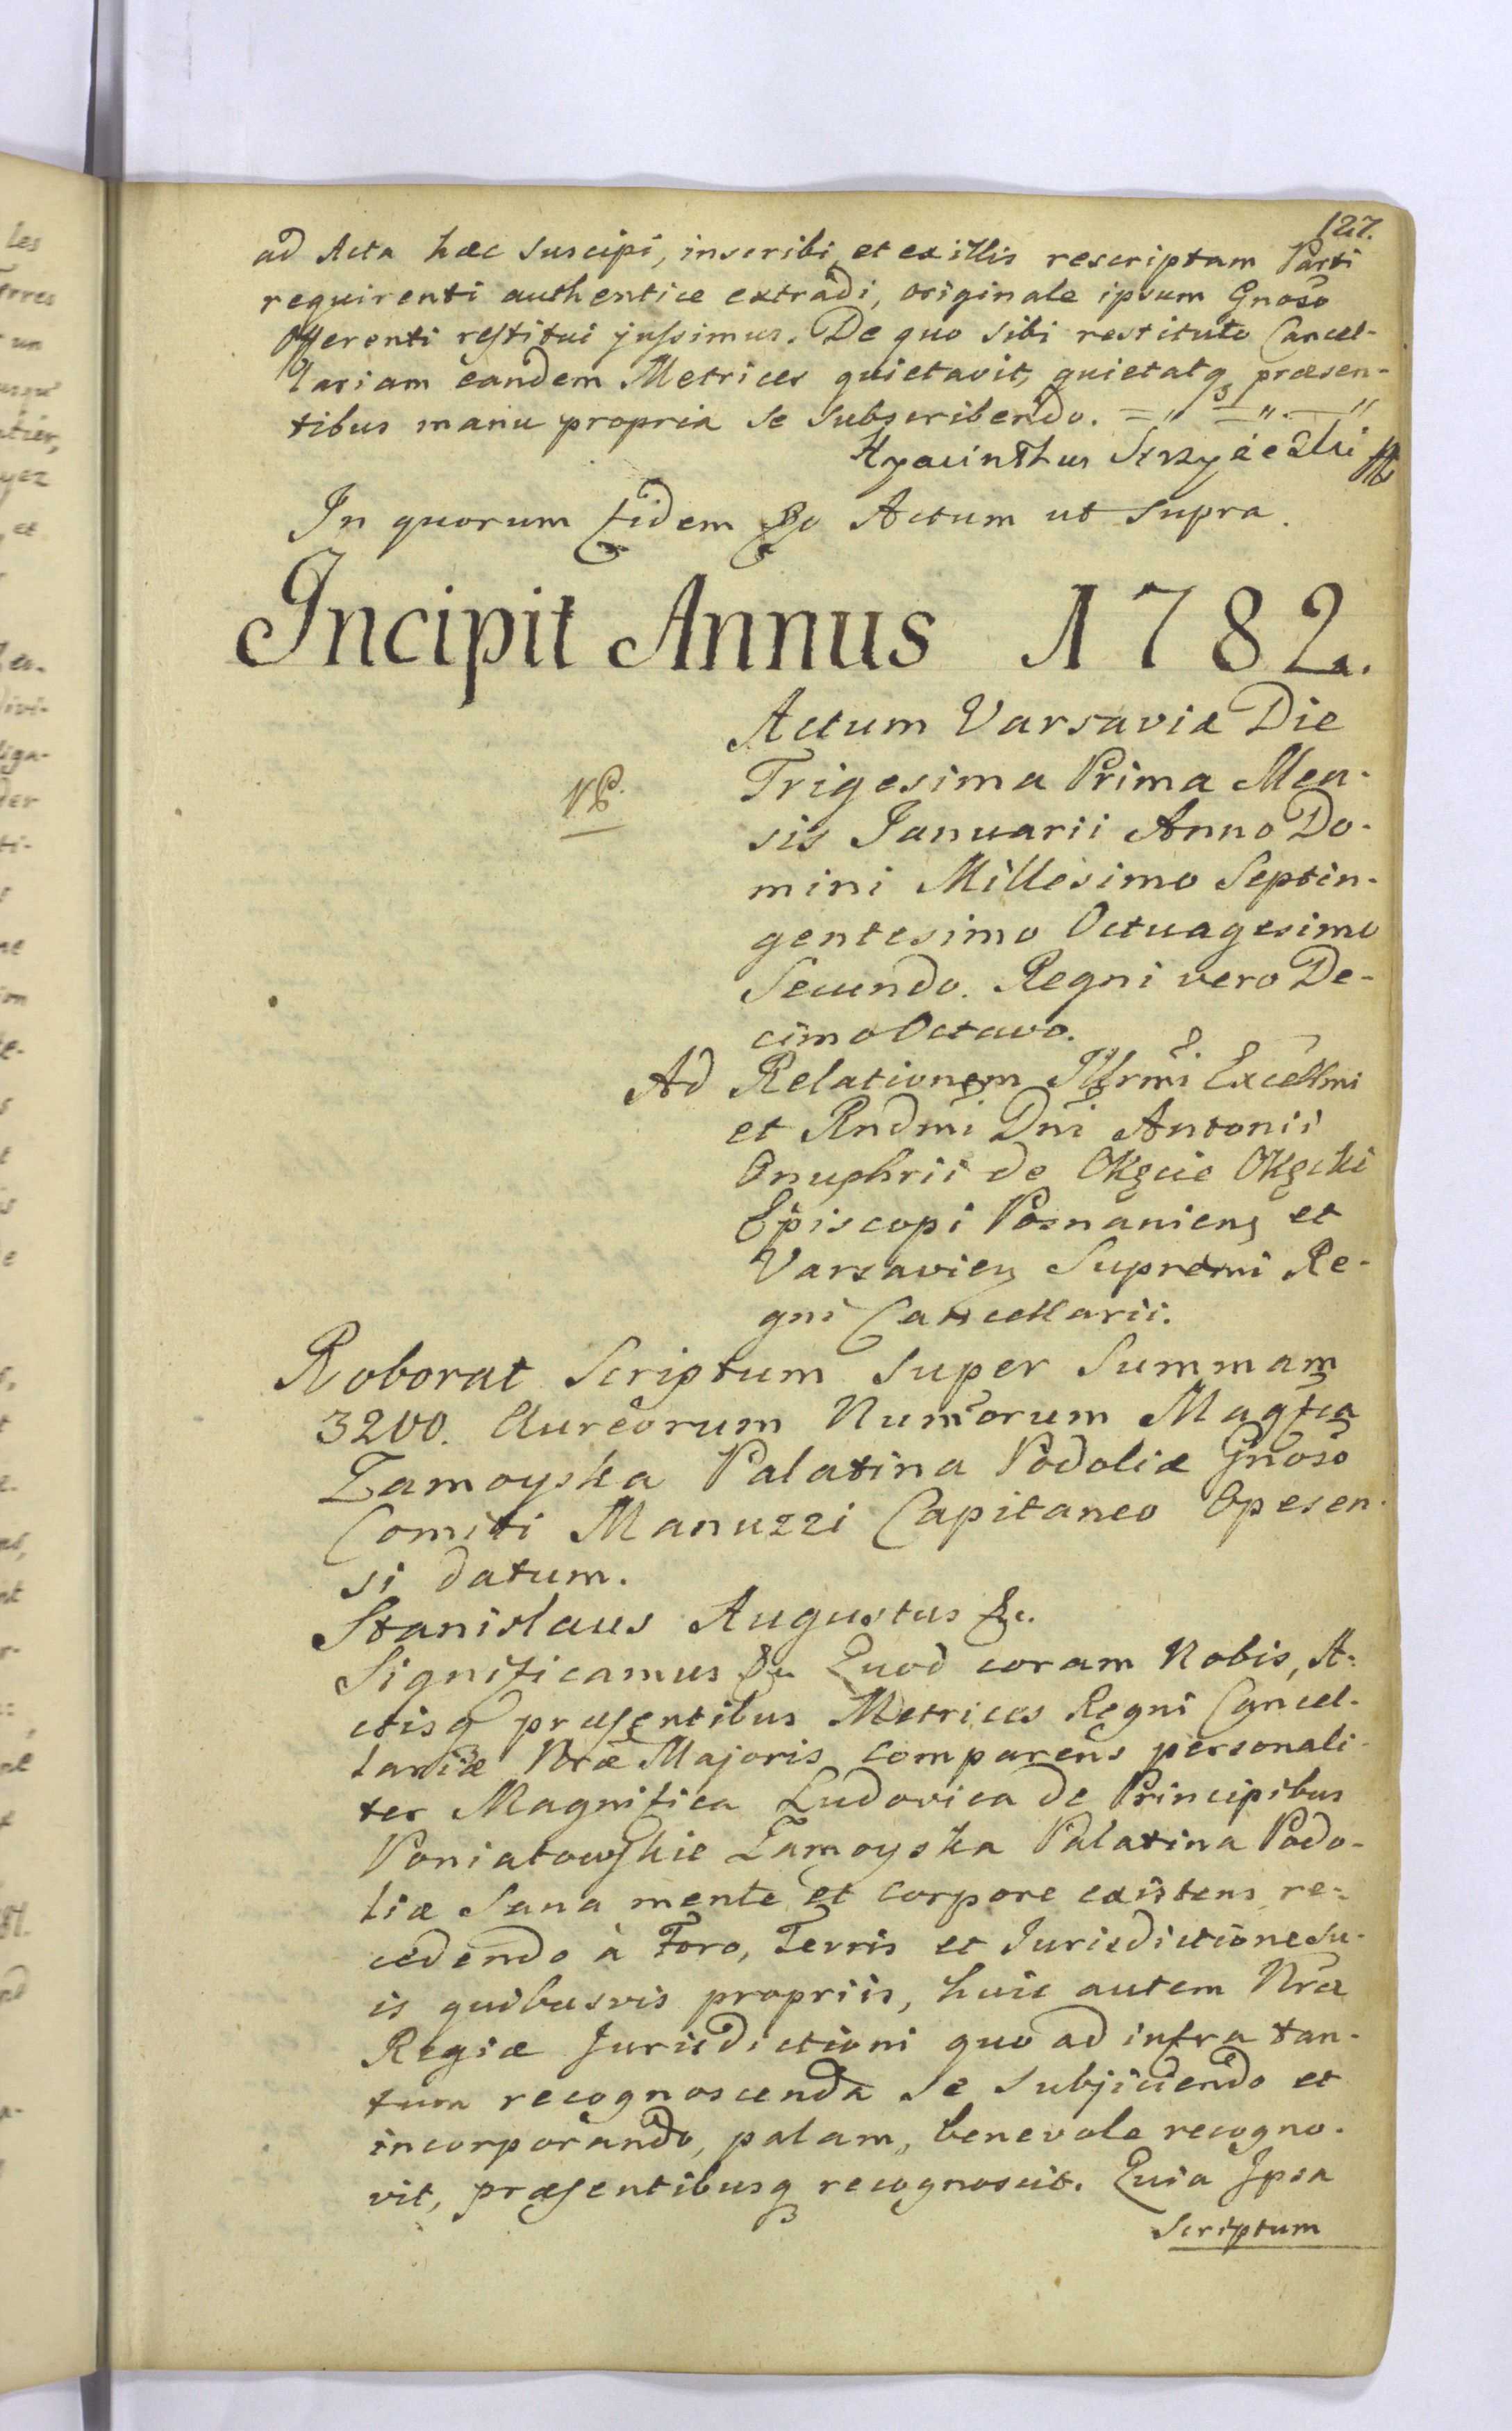 127.
ad Acta hæc suscipi, inscribi et ex illis rescriptum Parti
requirenti authentice extradi, originale ipsum Gnoso
Offerenti restitui jussimus. De quo sibi restituto Cancel-
lariam eandem Metrices quietavit, quietatq præsen-
tibus manu propria se subscribendo.
Hyacinthus
In quorum fidem &c Actum ut supra.
Incipit Annus 1782.
Actum Varsaviæ Die
Trigesima Prima Men-
sis Januarii Anno Do-
mini Millesimo Septin-
gentesimo Octuagesimo
Secundo. Regni vero De-
cimo Octavo.
Ad Relationem Illrmi Excellmi
et Rndmi Dni Antonii
Onuphrii de Okęcie Okęcki
Episcopi Posnanien et
Varsavien Supremi Re-
gni Cancellarii.
Roborat Scriptum super Summam
3200. Aureorum Numorum Magfca
Zamoyska Palatina Podoliæ Gnoso
Comiti Manuzzi Capitaneo Opesen-
si datum.
Stanislaus Augustus &c.
Significamus &c Quod coram Nobis, A-
ctisq præsentibus Metrices Regni Cancel-
lariæ Nræ Majoris comparens personali-
ter Magnifica Ludovica de Principibus
Poniatowskie Zamoyska Palatina Podo-
liæ Sana mente et corpore existens re-
cedendo à Foro, Terris et Jurisdictione su-
is quibusvis propriis, huic autem Nræ
Regiæ Jurisdictioni quo ad infra tan-
tum recognoscenda se subjiciendo et
incorporando, palam, benevole recogno-
vit, præsentibusq recognoscit. Quia Ipsa
Scriptum